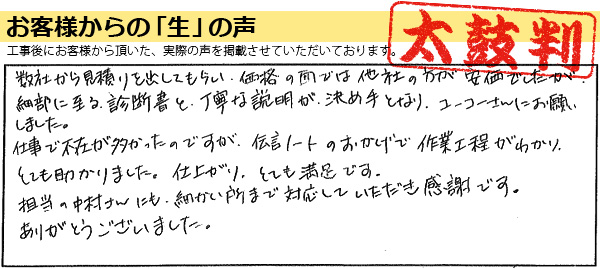 お客様からの「生」の声
工事後にお客様から頂いた、実際の声を掲載させていただいております。
太鼓判
数社から見積りを出してもらい、価格の面では他社の方が安価でしたが、
細部に至る診断書と、丁寧な説明が、決め手となり、ユーコーさんにお願い
しました。
仕事で不在が多かったのですが、伝言ノートのおかげで作業工程がわかり、
とても助かりました。仕上がり、とても満足です。
担当の中村さんにも、細かい所まで対応していただき感謝です。
ありがとうございました。